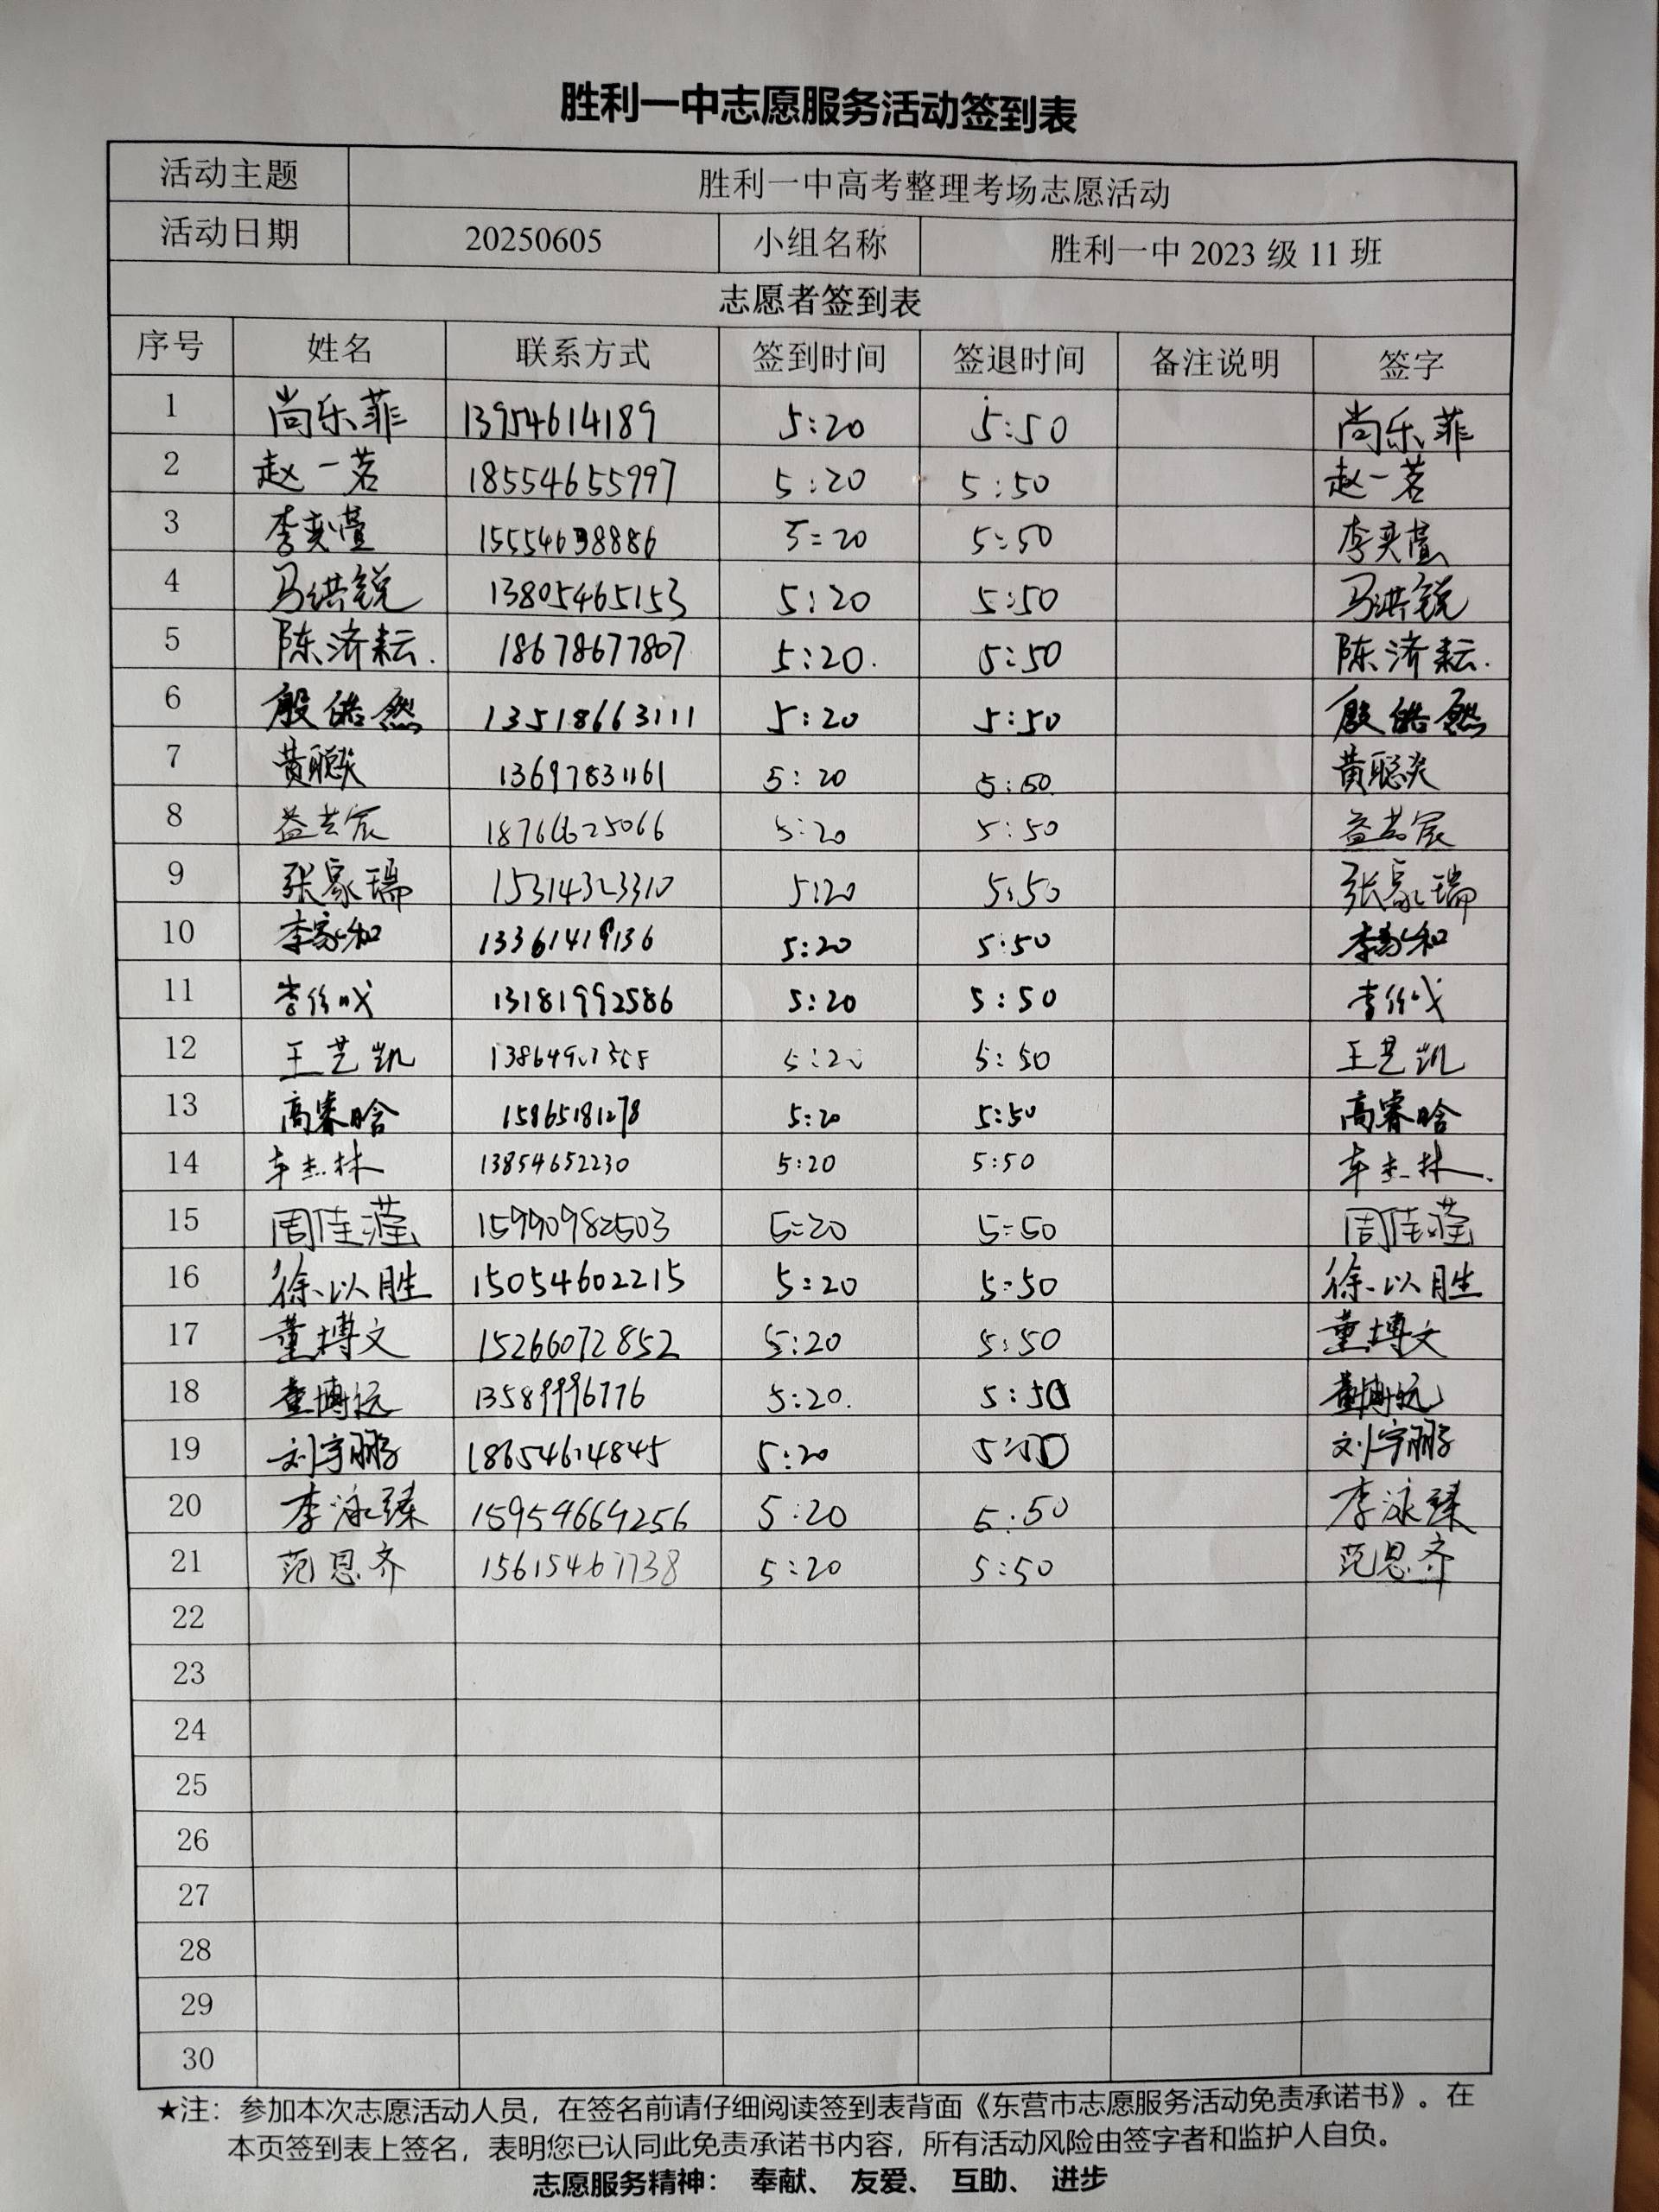 胜利一中志愿服务活动签到表
活动主题 胜利一中高考整理考场志愿活动
活动日期 20250605 小组名称 胜利一中2023级11班
志愿者签到表
序号 姓名 联系方式 签到时间 签退时间 备注说明 签字
1 尚乐菲 13954614189 5:20 5:50 尚乐菲
2 赵一茗 18554655997 5:20 5:50 赵一茗
3 李奕萱 15554638886 5:20 5:50 李奕萱
4 马洪锐 13805465153 5:20 5:50 马洪锐
5 陈济耘. 18678677807 5:20. 5:50 陈济耘.
6 殷皓然 13518663111 5:20 5:50 殷皓然
7 黄聪 13697831161 5:20 5:50 黄聪
8 18766625066 5:20 5:50
9 张家瑞 15314323310 5:20 5:50 张家瑞
10 李家和 13361419136 5:20 5:50 李家和
11 13181992586 5:20 5:50
12 王艺凯 5:20 5:50 王艺凯
13 高睿晗 15865181278 5:20 5:50 高睿晗
14 车杰林 13854652230 5:20 5:50 车杰林.
15 周佳滢 15990982503 5:20 5:50 周佳滢
16 徐以胜 15054602215 5:20 5:50 徐以胜
17 董搏文 15266072852 5:20 5:50 董搏文
18 董博远 13589996776 5:20. 5:50 董博远
19 刘宇鹏 18654614845 5:20 5:50 刘宇鹏
20 李泳臻 15954664256 5:20 5:50 李泳臻
21 范恩齐 15615467738 5:20 5:50 范恩齐
22
23
24
25
26
27
28
29
30
★注：参加本次志愿活动人员，在签名前请仔细阅读签到表背面《东营市志愿服务活动免责承诺书》。在
本页签到表上签名，表明您已认同此免责承诺书内容，所有活动风险由签字者和监护人自负。
志愿服务精神： 奉献、 友爱、 互助、 进步